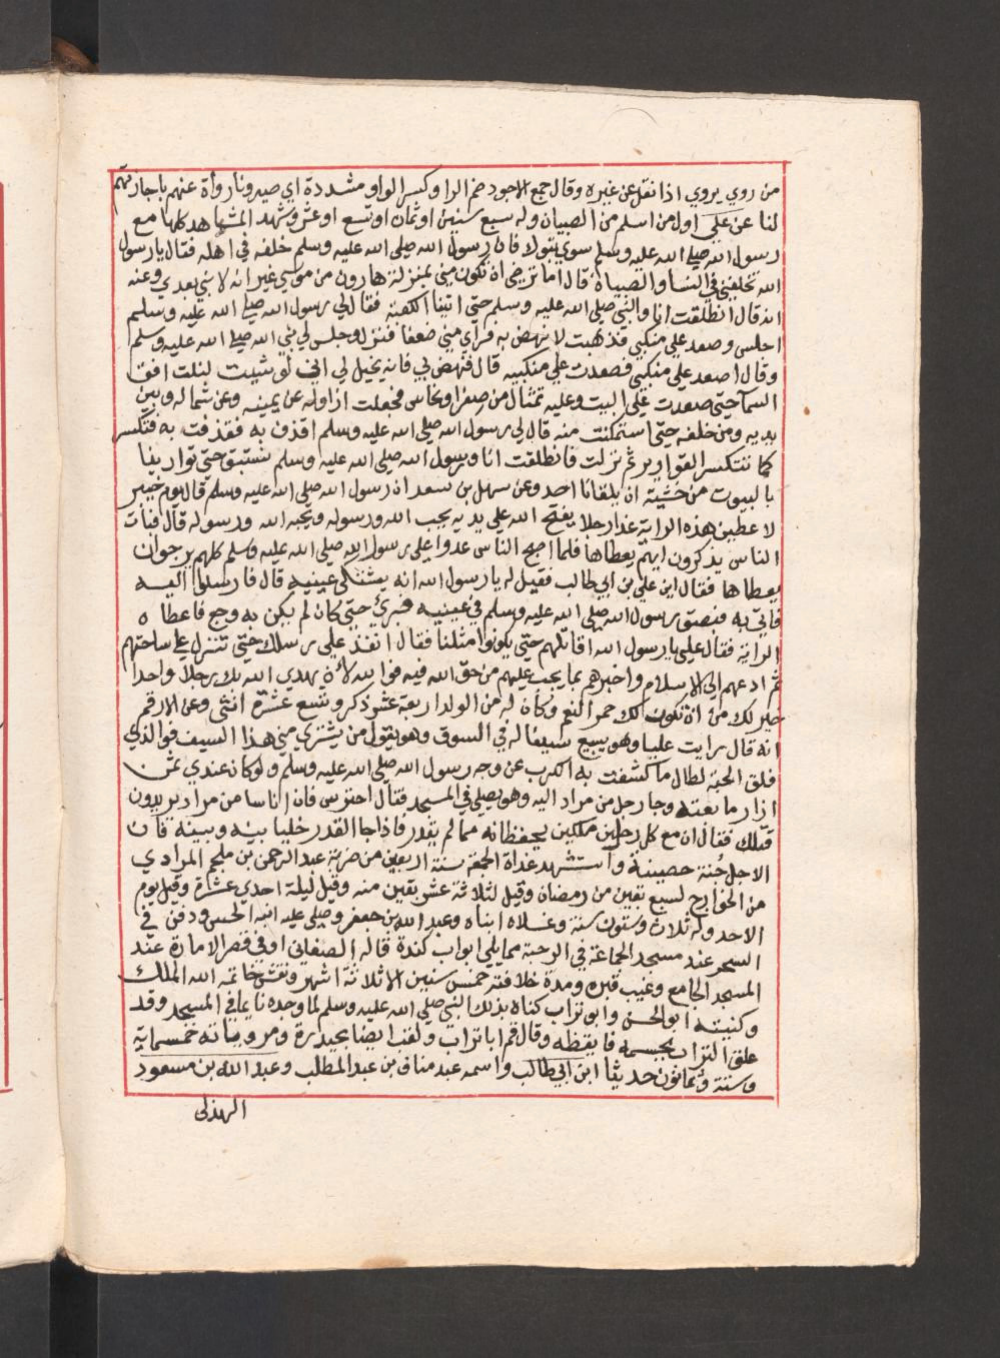 من روي يروي اذا نقل عن غيره وقال جمع الاجود ضم الرا وكسر الواو مشددة اي صيرونا رواة عنهم باجازتهم
لنا عن علي اول من اسلم من الصبيان وله سبع سنين او ثمان او تسع او عشر وشهد المشاهد كلها مع
رسول الله صلى الله عليه وسلم سوي تبوك فان رسول الله صلى الله عليه وسلم خلفه في اهله فقال يارسول
الله تخلفني في النسا والصبيان قال اما ترضى ان تكون مني بمنزلة هارون من موسي غير انه لا نبي بعدي وعنه
انه قال انطلقت انا والنبي صلى الله عليه وسلم حتى اتينا الكعبة فقال لي رسول الله صلى الله عليه وسلم
اجلس وصعد علي منكبي فذهبت لانهض به فراي مني ضعفا فنزل وجلس لي نبي الله صلى الله عليه وسلم
وقال اصعد علي منكبي فصعدت علي منكبيه قال فنهض بي فانه يخيل لي اني لو شيت لنلت افق
السما حتى صعدت علي البيت وعليه تمثال من صفر او نحاس فجعلت ازاوله عن يمينه وعن شماله وبين
يديه ومن خلفه حتى استمكنت منه قال لي رسول الله صلى الله عليه وسلم اقذف به فقذفت به فتكسر
كما تتكسر القوارير ثم نزلت فانطلقت انا ورسول الله صلى الله عليه وسلم نستبق حتى توارينا
بالبيوت من خشية ان يلقانا احد وعن سهل بن سعد ان رسول الله صلى الله عليه وسلم قال يوم خيبر
لا عطين هذه الراية غدا رجلا يفتح الله علي يديه يحب الله ورسوله ويحبه الله ورسوله قال فبات
الناس يذكرون ايهم يعطاها فلما اصبح الناس غدوا علي رسول الله صلى الله عليه وسلم كلهم يرجوان
يعطاها فقال اين علي بن ابي طالب فقيل له يارسول الله انه يشتكي عينيه قال فارسلوا اليه
فاتي به فبصق رسول الله صلى الله عليه وسلم في عينيه فبرئ حتى كان لم يكن به وجع فاعطاه
الراية فقال علي يارسول الله اقاتلهم حتى يكونوا مثلنا فقال انفذ علي رسلك حتى تنزل علي ساحتهم
ثم ادعهم الي الاسلام واخبرهم بما يجب عليهم من حق الله فيه فوالله لان يهدي الله بك رجلا واحدا
خير لك من ان تكون لك حمر النعم وكان له من الولد اربعة عشر ذكر وتسع عشرة انثى وعن الارقم
انه قال رايت عليا وهو يبيع سيفا له في السوق وهو يقول من يشتري مني هذا السيف فوالذي
فلق الحبة لطال ما كشفت به الكرب عن وجه رسول الله صلى الله عليه وسلم ولو كان عندي ثمن
ازار ما بعته وجا رجل من مراد اليه وهو يصلي في المسجد فقال احترس فان اناسا من مراد يريدون
قتلك فقال ان مع كل رجل ملكين يحفظانه مما لم يقدر فاذا جا القدر خليا بينه وبينه فان
الاجل جُنة حصينة واستشهد غداة الجمعة سنة اربعين من ضربة عبد الرحمن بن ملجم المرادي
من الخوارج لسبع بقين من رمضان وقيل لثلاثة عشر بقين منه وقيل ليلة احدي عشرة وقيل يوم
الاحد وله ثلاث وستون سنة وغسلاه ابناه وعبد الله بن جعفر وصلي عليه ابنه الحسن ودفن في
السحر عند مسجد الجماعة في الرحبة مما يلي ابواب كندة قاله الصنعاني او في قصر الامارة عند
المسجد الجامع وغيب قبره ومدة خلافته خمس سنين الا ثلاثة اشهر ونقش خاتمه الله الملك
وكنيته ابو الحسن وابو تراب كناه بذلك النبي صلى الله عليه وسلم لما وجده نايما في المسجد وقد
علق التراب بجسمه فايقظه وقال قم ابا تراب ولقب ايضا بحيدرة ومروياته خمسماية
وستة وثمانون حديثا ابن ابي طالب واسمه عبد مناف بن عبد المطلب وعبد الله بن مسعود
الهذلى